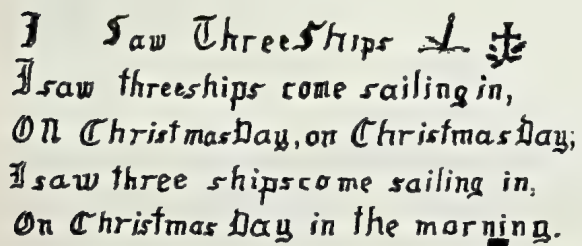 I Saw Three Ships
I saw three ships come sailing in,
On Christmas Day, on Christmas Day;
I saw three ships come sailing in,
On Christmas Day in the morning.